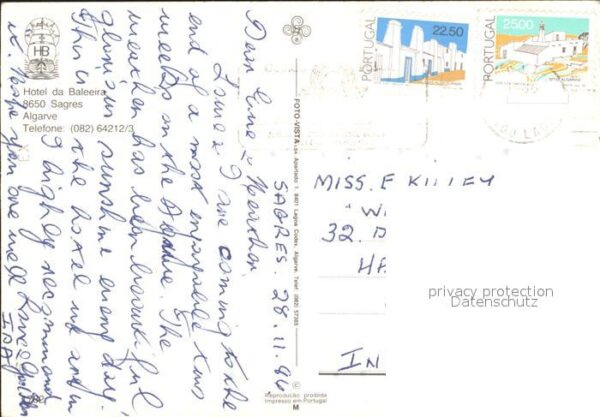 HB
Hotel da Baleeira
8650 Sagres
Algarve
Telefone: (082) 64212/3
SAGRES. 28.11.86
Dear Erne & Heather,
Ismé & I are coming to the
end of a most enjoyable two
weeks in the Algarve. The
weather has been beautiful
glorious sunshine every day.
This is the hotel we are in
& I highly recommend
it. Hope you are well Love
IRA
FOTO-VISTA
Apartado 1, 8401 Lagoa Codex, Algarve, Telef. (082) 57383
©
Reprodução proibida
Impresso em Portugal
M
PORTUGAL
22.50
PORTUGAL
25.00
MISS. E KILLEY
W
32.
HA
IN
privacy protection
Datenschutz